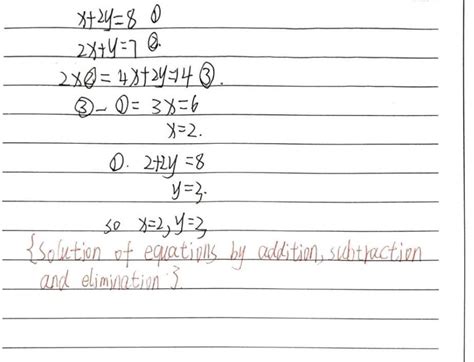 x+2y=8 ①
2x+y=7 ②
2×②=4x+2y=14 ③.
③-①= 3x=6
x=2.
①. 2+2y=8
y=3.
so x=2, y=3
{Solution of equations by addition, subtraction
and elimination}.